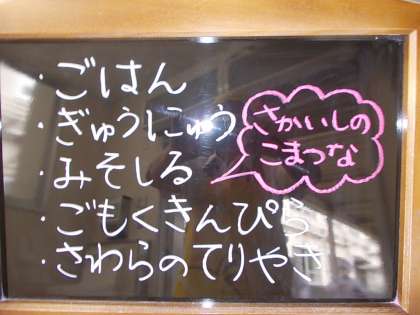 ・ごはん
・ぎゅうにゅう
・みそしる
さかいしの
こまつな
・ごもくきんぴら
・さわらのてりやき